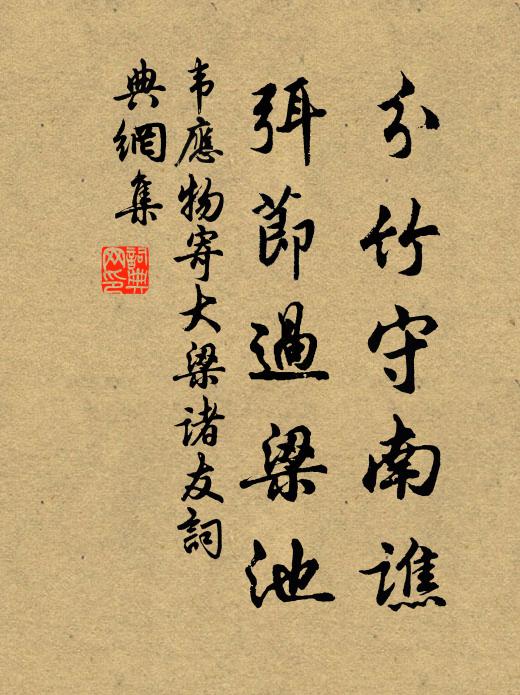 分竹守南譙
弭節過梁池
韦應物寄大梁诸友詞
典網集
詞典网印